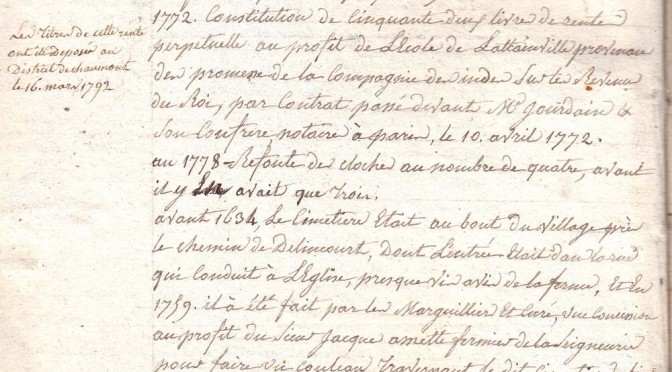 Les titres de cette rente
ont été deposés au
District de chaumont
le 16. mars 1792
1772. Constitution de Cinquante deux livre de rente
perpetuelle au profit de L'Ecole de Lattainville provenan
des promesse de la Compagnie des indes Sur les Revenus
du Roi, par Contrat passé devant Me Jourdain &
Son Confrere notaire à paris, le 10. avril 1772.
au 1778 Refonte des cloches au nombre de quatre, avant
il y En avait que trois.
avant 1634, Le Cimetiere Etait au bout du village près
le chemin de Delincourt, Dont L'entrée Etait dans la rue
qui Conduit à L'Eglise, presque vis avis de la ferme, Et En
1759. il à été fait par les Marguillier Et Cure, une Concession
au profit du Sieur Jacque amette fermier de la Seigneurie
pour faire un Couleau traversant le dit